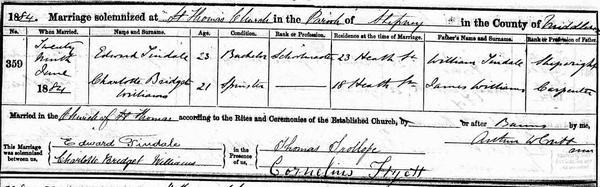 1884. Marriage solemnized at St Thomas Church in the Parish of Stepney in the County of Middlesex
No. When Married. Name and Surname. Age. Condition. Rank or Profession. Residence at the time of Marriage. Father's Name and Surname. Rank or Profession of Father.
359 Twenty Ninth June 1884 Edward Tindale 23 Bachelor Schoolmaster 23 Heath St William Tindale Shipwright
Charlotte Bridget Williams 21 Spinster 18 Heath St James Williams Carpenter
Married in the Church of St Thomas according to the Rites and Ceremonies of the Established Church, by or after Banns by me,
This Marriage was solemnized between us, Edward Tindale Charlotte Bridget Williams in the Presence of us, Thomas Trollope Cornelius Arthur